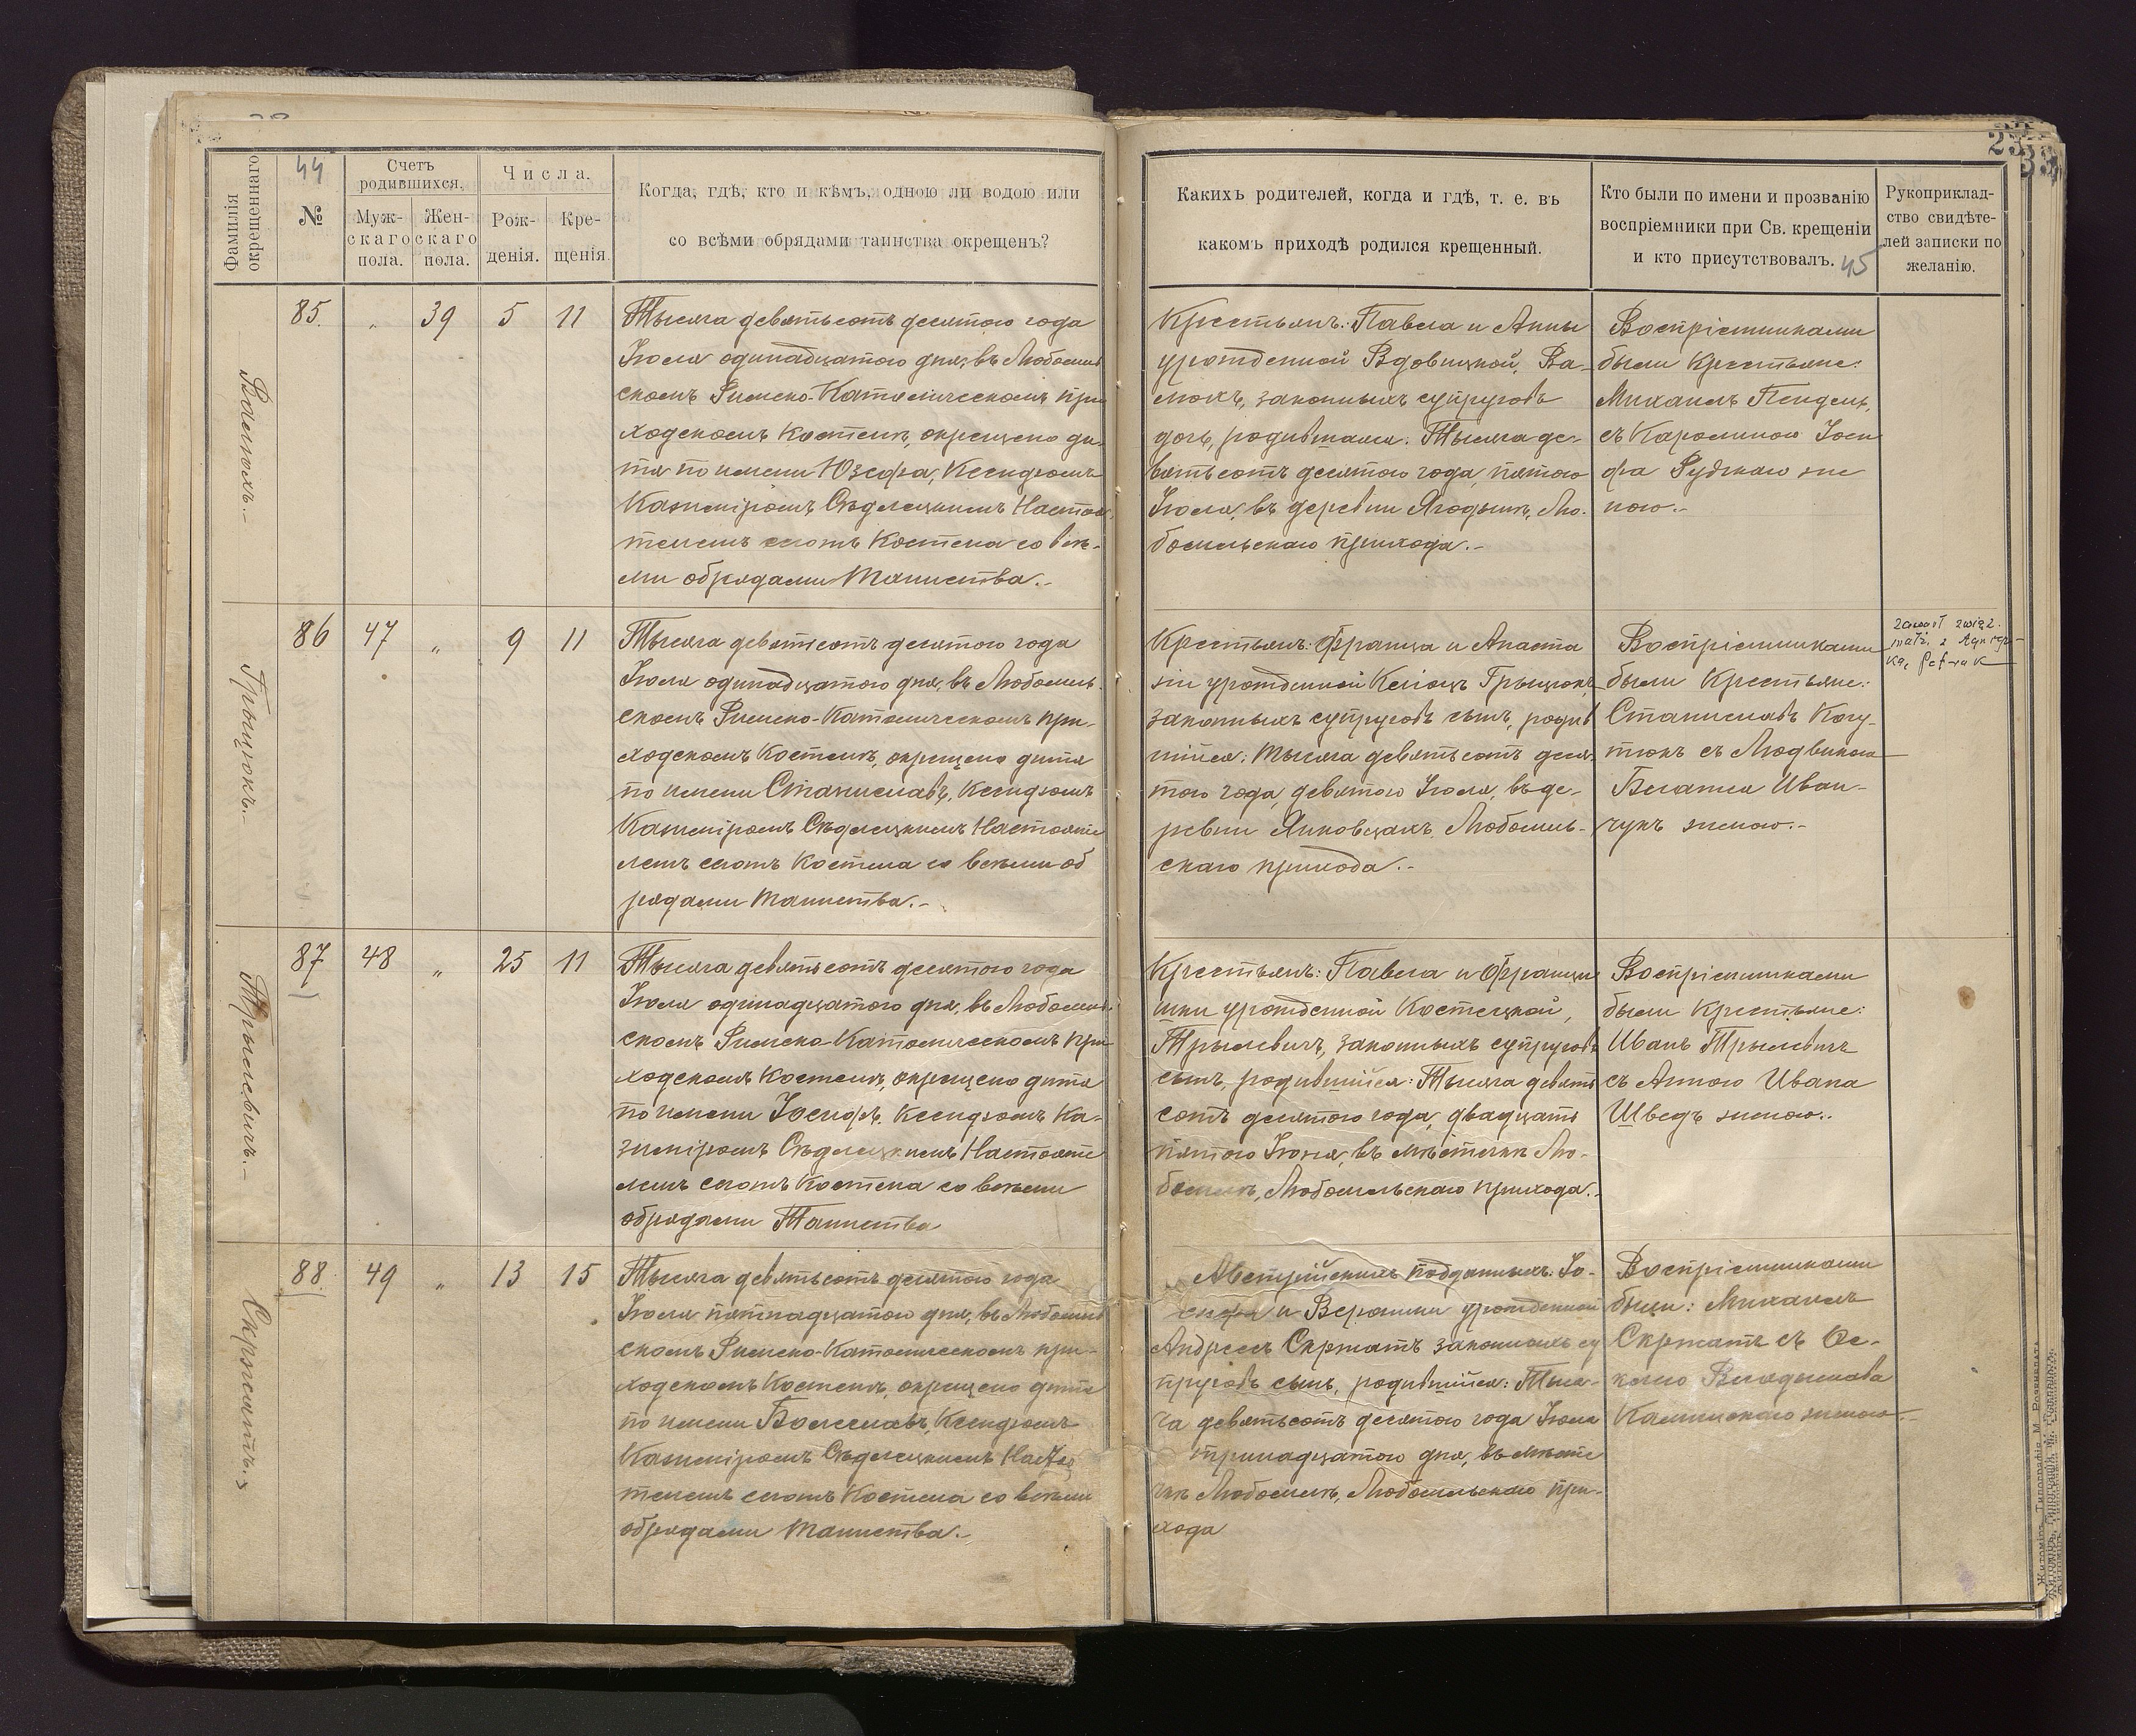 44
Фамилія окрещеннаго
№
Счетъ родившихся.
Муж-
скаго
пола.
Жен-
скаго
пола.
Числа.
Рож-
денія.
Кре-
щенія.
Когда, гдѣ, кто и кѣмъ, одною ли водою или
со всѣми обрядами таинства окрещенъ?
Какихъ родителей, когда и гдѣ, т. е. въ
какомъ приходѣ родился крещенный.
Кто были по имени и прозванію
воспріемники при Св. крещеніи
и кто присутствовалъ.
45
Рукоприклад-
ство свидѣте-
лей записки по
желанію.
Валюхъ.-
85.
„
39
5
11
Тысяча девятьсотъ десятого года
Іюля одинадцатого дня, въ Любомль
скомъ Римско-Католическомъ при
ходскомъ Костелѣ, окрещено ди-
тя по имени Юзефа, Ксендзомъ
Казиміромъ Сѣдлецкимъ Настоя
телемъ сегомъ Костела со всѣ-
ми обрядами Таинства.-
Крестьянъ: Павла и Анны
урожденной Вдовицкой, Ва-
люхъ, законныхъ супруговъ
дочь, родившаяся: Тысяча де-
вятьсотъ десятого года, пятого
Іюля, въ деревни Ягодынѣ, Лю-
бомльскаго прихода.-
Воспріемниками
были Крестьяне:
Михаилъ Пендель,
съ Каролиною Іоси
фа Рудскаго же
ною.-
Грыцюкъ.-
86
47
„
9
11
Тысяча девятьсотъ десятого года
Іюля одинадцатого дня, въ Любомль-
скомъ Римско-Католическомъ при-
ходскомъ Костелѣ, окрещено дитя
по имени Станиславъ, Ксендзомъ
Казиміромъ Сѣдлецкимъ Настояте
лемъ сегомъ Костела со всѣми об
рядами Таинства.-
Крестьянъ: Франца и Анаста
зіи урожденной Грыцюкъ
законныхъ супруговъ сынъ, родив
шійся: Тысяча девятьсотъ деся-
того года, девятого Іюля, въ де-
ревни Янковцахъ, Любомль-
скаго прихода.-
Воспріемниками
были Крестьяне:
Станиславъ Когу-
тюкъ съ Людвикою
Иван-
чукъ женою.-
zawarł związ.
małż. z
Трылевичъ.-
87
48
„
25
11
Тысяча девятьсотъ десятого года
Іюля одинадцатого дня, въ Любомль-
скомъ Римско-Католическомъ при
ходскомъ Костелѣ, окрещено дитя
по имени Іосифъ, Ксендзомъ Ка-
зиміромъ Сѣдлецкимъ Настояте
лемъ сегомъ Костела со всѣми
обрядами Таинства
Крестьянъ: Павла и Францы
шки урожденной Костецкой,
Трылевичъ, законныхъ супруговъ
сынъ, родившійся: Тысяча девять
сотъ десятого года, двадцать
пятого Іюня, въ мѣстечкѣ Лю-
бомлѣ, Любомльскаго прихода.-
Воспріемниками
были Крестьяне:
Иванъ Трылевичъ
съ Анною Ивана
Шведъ женою.-
Скржатъ.-
88.
49
„
13
15
Тысяча девятьсотъ десятого года
Іюля пятнадцатого дня, въ Любомль
скомъ Римско-Католическомъ при-
ходскомъ Костелѣ, окрещено дитя
по имени Болеславъ, Ксендзомъ
Казиміромъ Сѣдлецкимъ Настоя
телемъ сегомъ Костела со всѣми
обрядами Таинства.-
Австрійскихъ подданныхъ: Іо-
сифа и Вероники урожденной
Андресъ Скржатъ законныхъ су
пруговъ сынъ, родившійся: Тыся-
ча девятьсотъ десятого года Іюля
тринадцатого дня, въ мѣсте
чкѣ Любомлѣ, Любомльскаго при-
хода
Воспріемниками
были: Михаилъ
Скржатъ съ
Владислава
Калинскаго женою.-